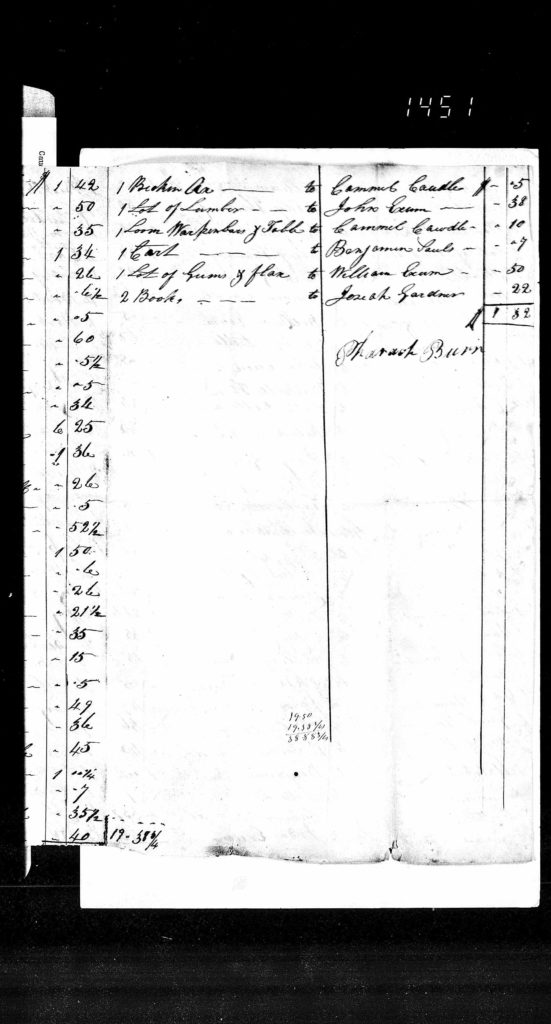 1451
Cam
$ 1 42 1 Broken Axe — to Cammel Caudle $ - .5
- 50 1 Lot of Lumber - - to John Exum — - 38
- 35 1 Loom Warpenbars & Tabb to Cammel Cawdle - - 10
1 34 1 Cart — — — to Benjamin Sauls - - .7
- 26 1 Lot of Gums & flax to William Exum - - 50
- .6½ 2 Books - — — to Josiah Gardner - 22
- .5 $ 1 32
- 60
Pharaoh Burn
- .5½
- .5
- 34
6 25
1 36
- 26
- .5
- 52½
1 50
- .6
- 26
- 21½
- 35
- 15
- .5
- 49
- 36
19.50
- 45
1
- .7
- 35½
- 40 19 - 38¾